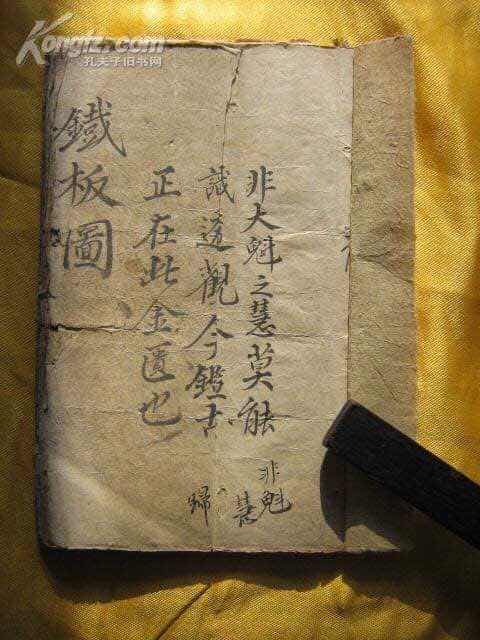 Kongfz.com
孔夫子旧书网
非大魁之慧莫能
識逺觀今鑑古
正在此金匱也
鐵板圖
非魁
慧
歸